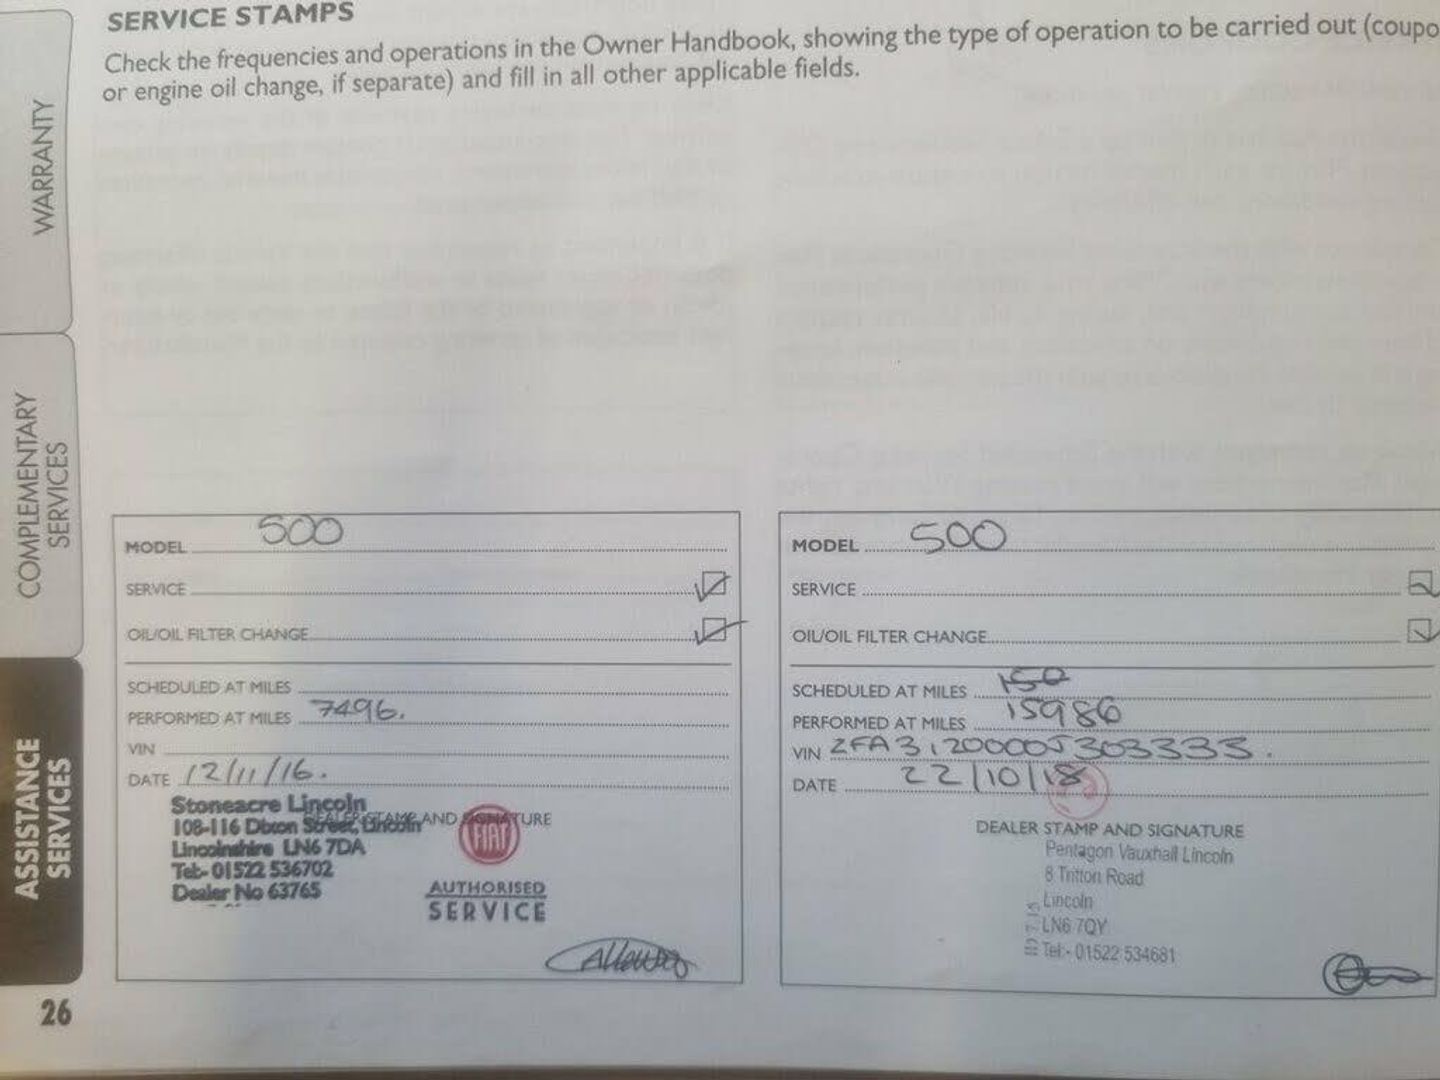 SERVICE STAMPS
Check the frequencies and operations in the Owner Handbook, showing the type of operation to be carried out (coupo
or engine oil change, if separate) and fill in all other applicable fields.
WARRANTY
COMPLEMENTARY
SERVICES
ASSISTANCE
SERVICES
MODEL 500
SERVICE
OIL/OIL FILTER CHANGE
SCHEDULED AT MILES
PERFORMED AT MILES 7496.
VIN
DATE 12/11/16.
DEALER STAMP AND SIGNATURE
Stoneacre Lincoln
108-116 Dixon Street, Lincoln
Lincolnshire LN6 7DA
Tel:- 01522 536702
Dealer No 63765
FIAT
AUTHORISED
SERVICE
MODEL 500
SERVICE
OIL/OIL FILTER CHANGE
SCHEDULED AT MILES 150
PERFORMED AT MILES 15986
VIN ZFA3120000J303333.
DATE 22/10/18
DEALER STAMP AND SIGNATURE
Pentagon Vauxhall Lincoln
8 Tritton Road
Lincoln
LN6 7QY
Tel:- 01522 534681
26